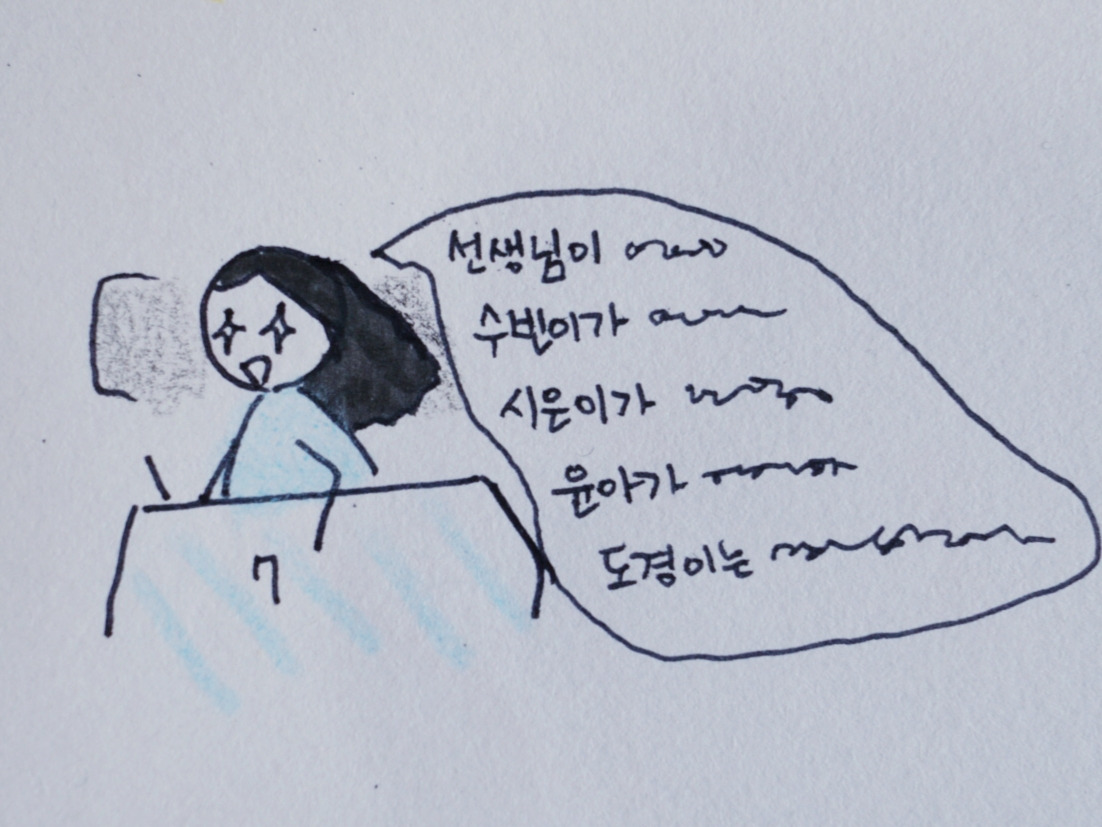 선생님이
수빈이가
시윤이가
윤아가
도경이는
7